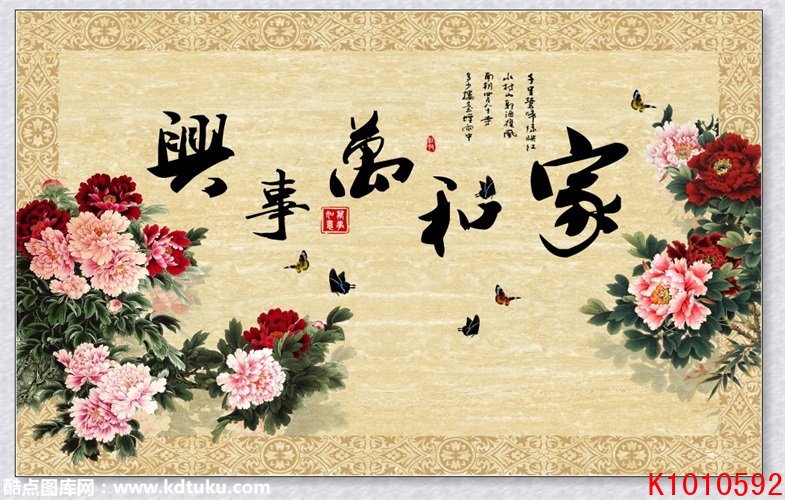 家和萬事興
千里鶯啼綠映紅
水村山郭酒旗風
南朝四百八十寺
多少樓臺煙雨中
萬事
如意
酷点图库网：www.kdtuku.com
K1010592